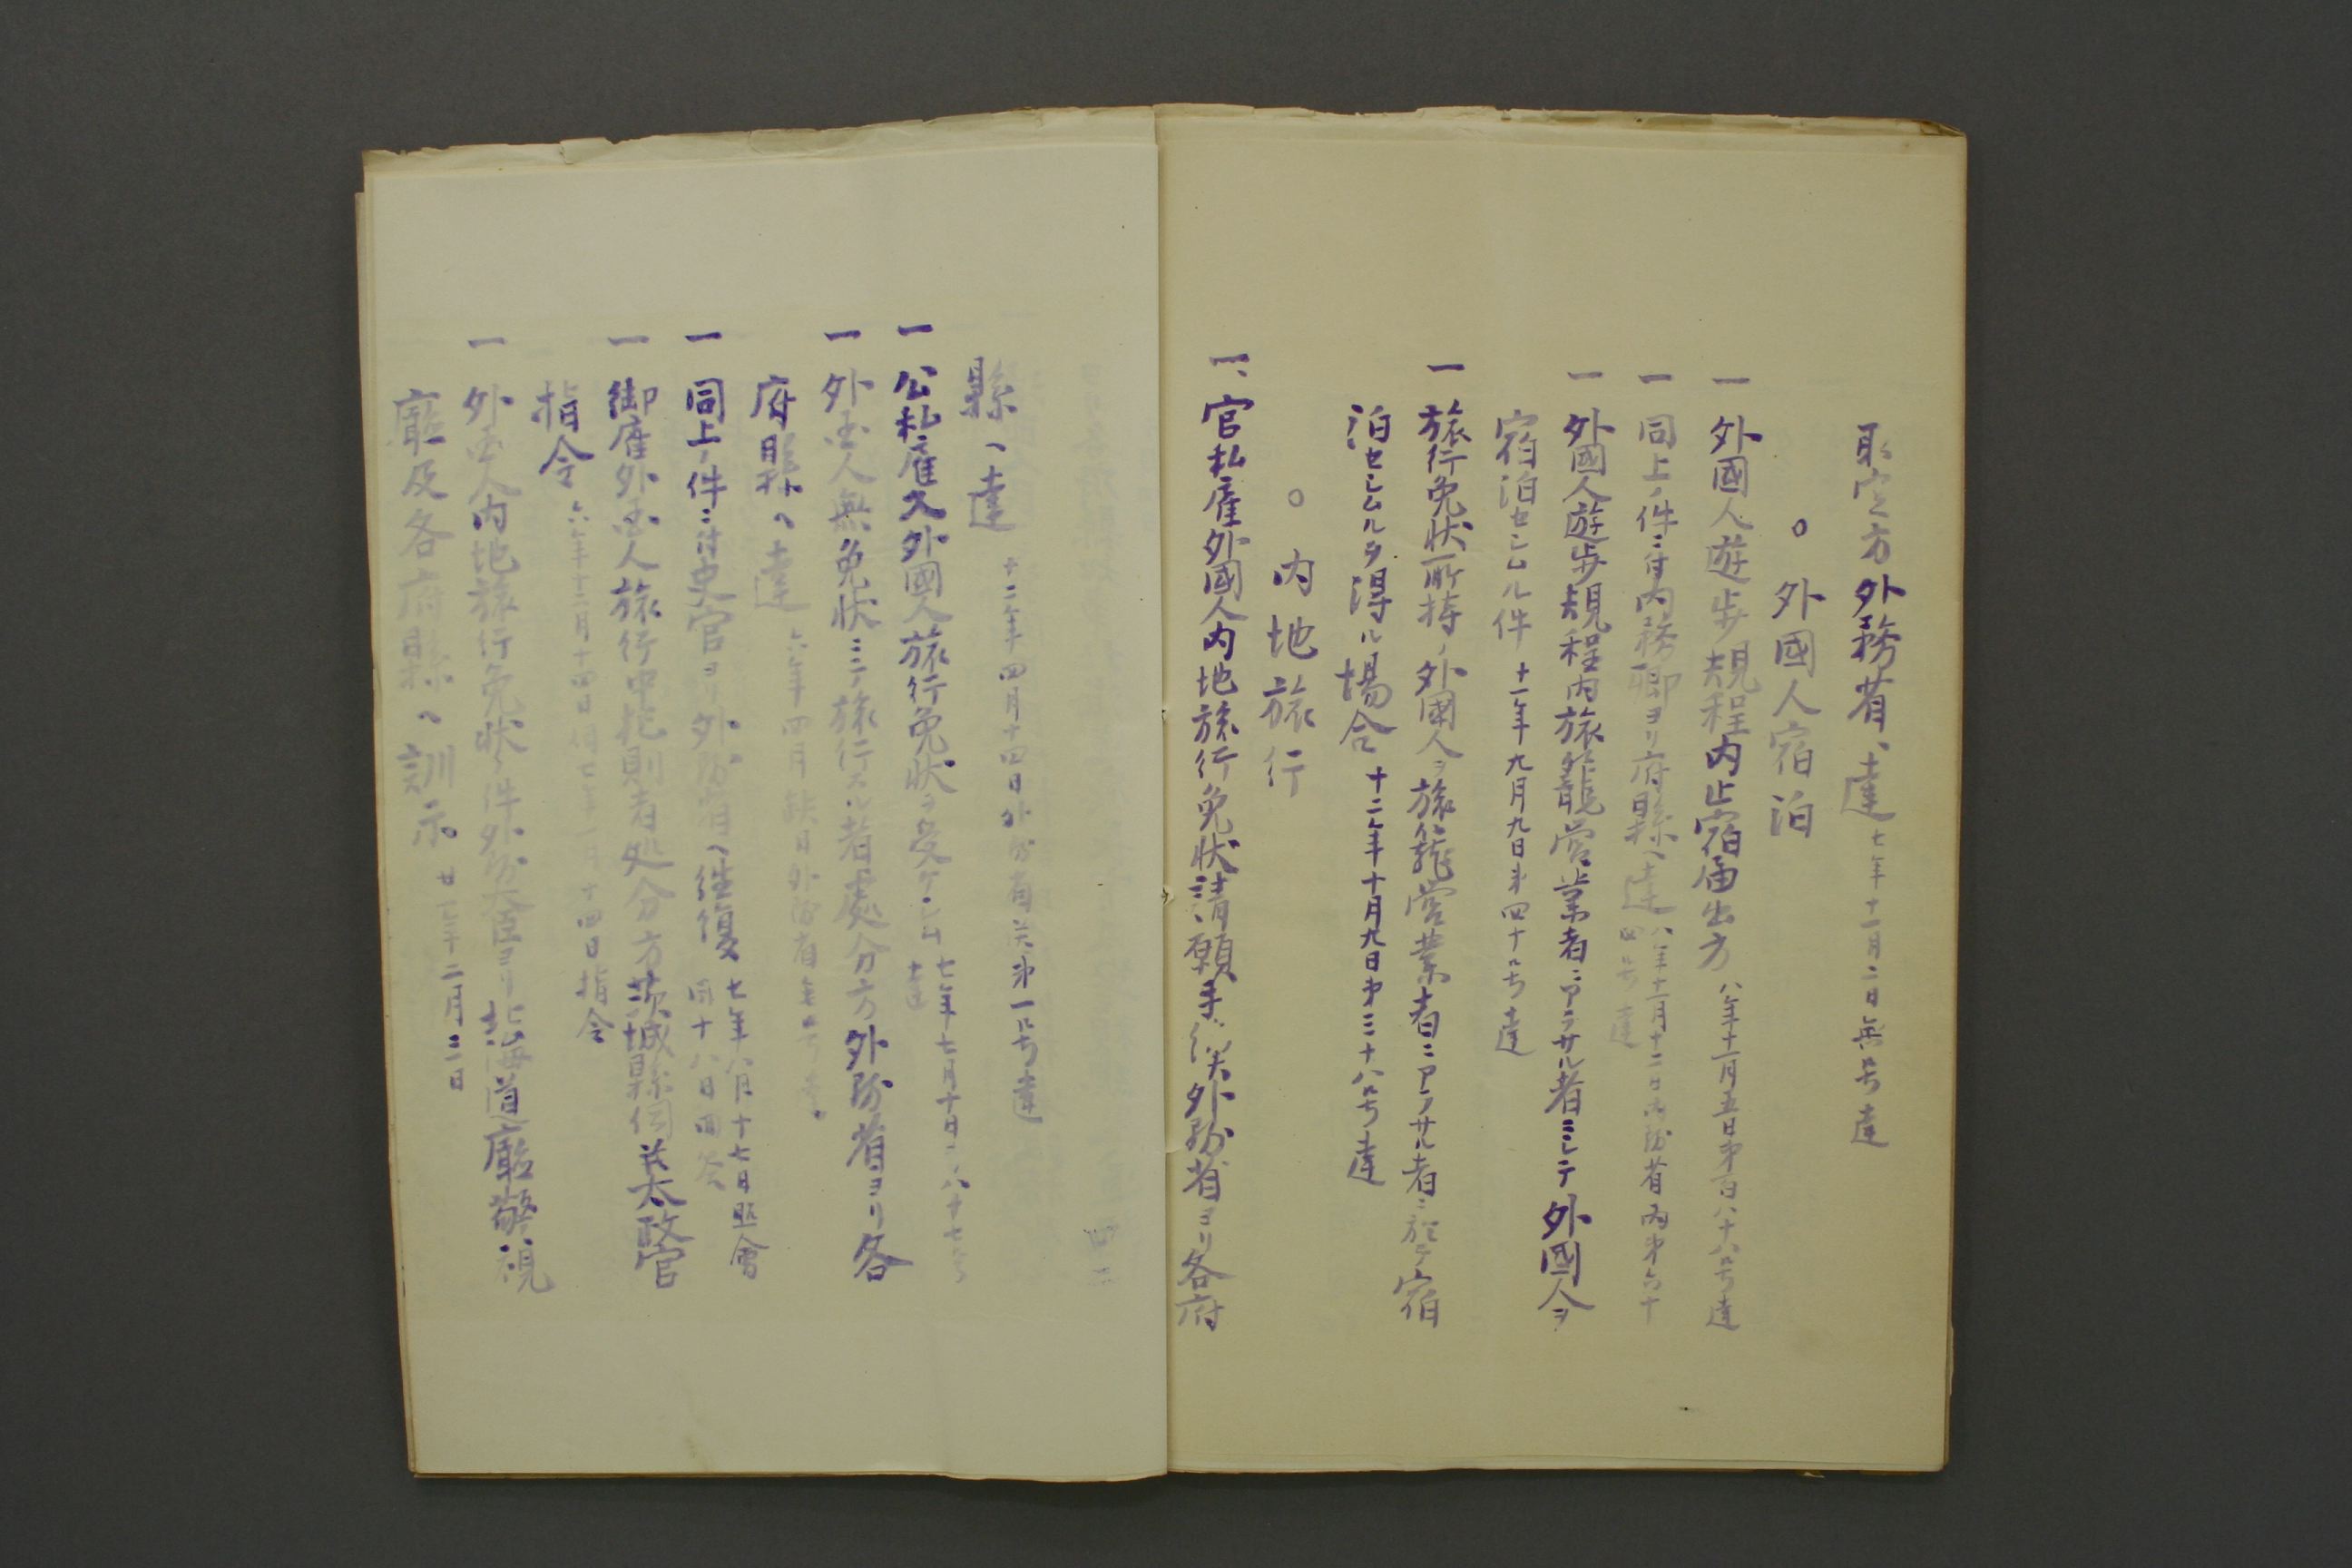 取定方外務省ヘ達 七年十一月二日無号達
○外國人宿泊
一 外國人遊歩規程内止宿届出方 八年十一月五日第百八十八号達
一 同上ノ件ニ付内務卿ヨリ府縣ヘ達 八年十一月十二日内務省丙第六十
四号達
一 外國人遊歩規程内旅籠営業者ニアラサル者ニシテ外國人ヲ
宿泊セシムル件 十一年九月九日第四十号達
一 旅行免状所持ノ外國人ヲ旅籠営業者ニアラサル者ニ於テ宿
泊セシムルヲ得ル場合 十二年十月九日第三十八号達
○内地旅行
一、官私雇外國人内地旅行免状請願手續 外務省ヨリ各府
縣ヘ達 十二年四月十四日外務省 第一号達
一 公私雇入外國人旅行免状ヲ受ケシム 七年七月十日 八十七号
達
一 外国人無免状ニテ旅行スル者處分方外務省ヨリ各
府縣ヘ達 六年四月欠日外務省無号達
一 同上ノ件ニ付史官ヨリ外務省ヘ往復 七年八月十七日照會
同十八日回答
一 御雇外国人旅行中犯則者処分方茨城縣伺 太政官
指令 六年十二月十四日伺七年一月十四日指令
一 外国人内地旅行免状ノ件外務大臣ヨリ北海道廳警視
廳及各府縣ヘ訓示 廿 年十二月三日